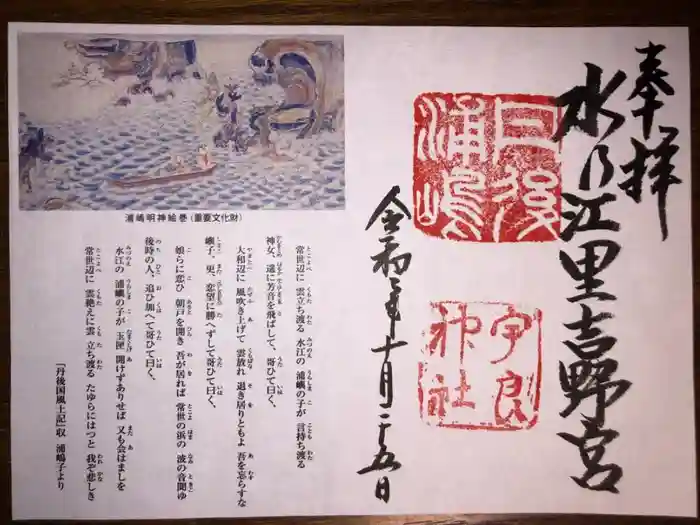 奉拝
水乃江里吉野宮
丹後
浦嶋
宇良
神社
令和年十月二十五日
浦嶋明神絵巻(重要文化財)
常世辺に 雲立ち渡る 水江の 浦嶼の子が 言持ち渡る
神女、遥に芳音を飛ばして、哥ひて曰く、
大和辺に 風吹き上げて 雲放れ 退き居りともよ 吾を忘らすな
嶼子、更、恋望に勝へずして哥ひて曰く、
娘らに恋ひ 朝戸を開き 吾が居れば 常世の浜の 波の音聞ゆ
後時の人、追ひ加へて哥ひて曰く、
水江の 浦嶼の子が 玉匣 開けずありせば 又も会はましを
常世辺に 雲絶えに雲 立ち渡る たゆらにはつと 我ぞ悲しき
「丹後国風土記」収 浦嶋子より